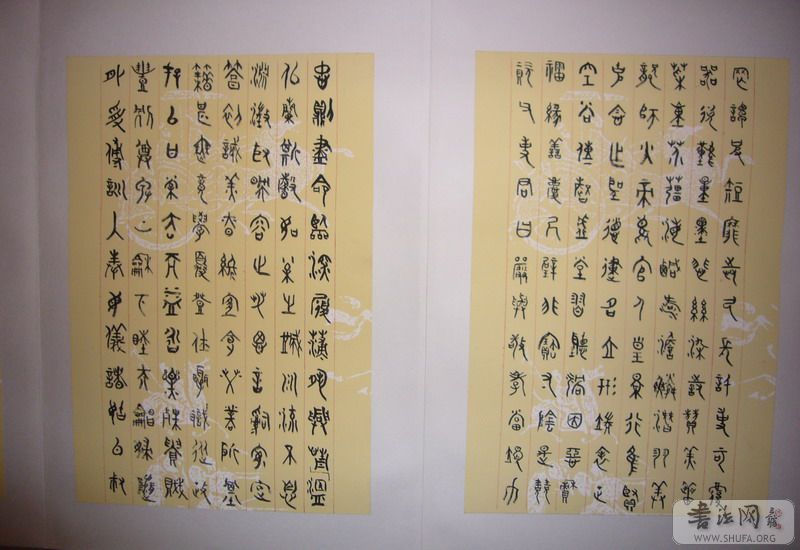 罔談彼短靡恃己長信使可覆
器欲難量墨悲絲染詩讚羔羊
菜重芥薑海鹹河淡鱗潛羽翔
龍師火帝鳥官人皇景行維賢
克念作聖德建名立形端表正
空谷傳聲虛堂習聽禍因惡積
福緣善慶尺璧非寶寸陰是競
資父事君曰嚴與敬孝當竭力
忠則盡命臨深履薄夙興溫凊
似蘭斯馨如松之盛川流不息
淵澄取映容止若思言辭安定
篤初誠美慎終宜令榮業所基
籍甚無竟學優登仕攝職從政
存以甘棠去而益詠樂殊貴賤
禮別尊卑上和下睦夫唱婦隨
外受傅訓入奉母儀諸姑伯叔
书法网
WWW.SHUFA.ORG